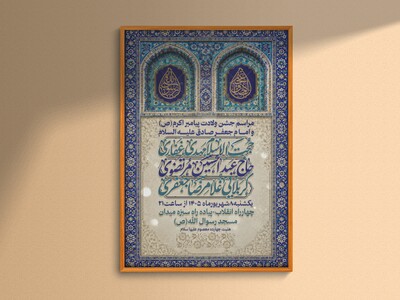 مراسم جشن ولادت پیامبر اکرم(ص)
و امام جعفر صادق علیه السلام
حجت الاسلام مهدی غفاری
حاج عبدالحسین مرتضوی
کربلایی غلامرضا جعفری
یکشنبه ۸ شهریور ماه ۱۴۰۵ از ساعت ۲۱
چهارراه انقلاب-پیاده راه سبزه میدان
مسجد رسول الله(ص)
هیئت چهارده معصوم علیهم السلام